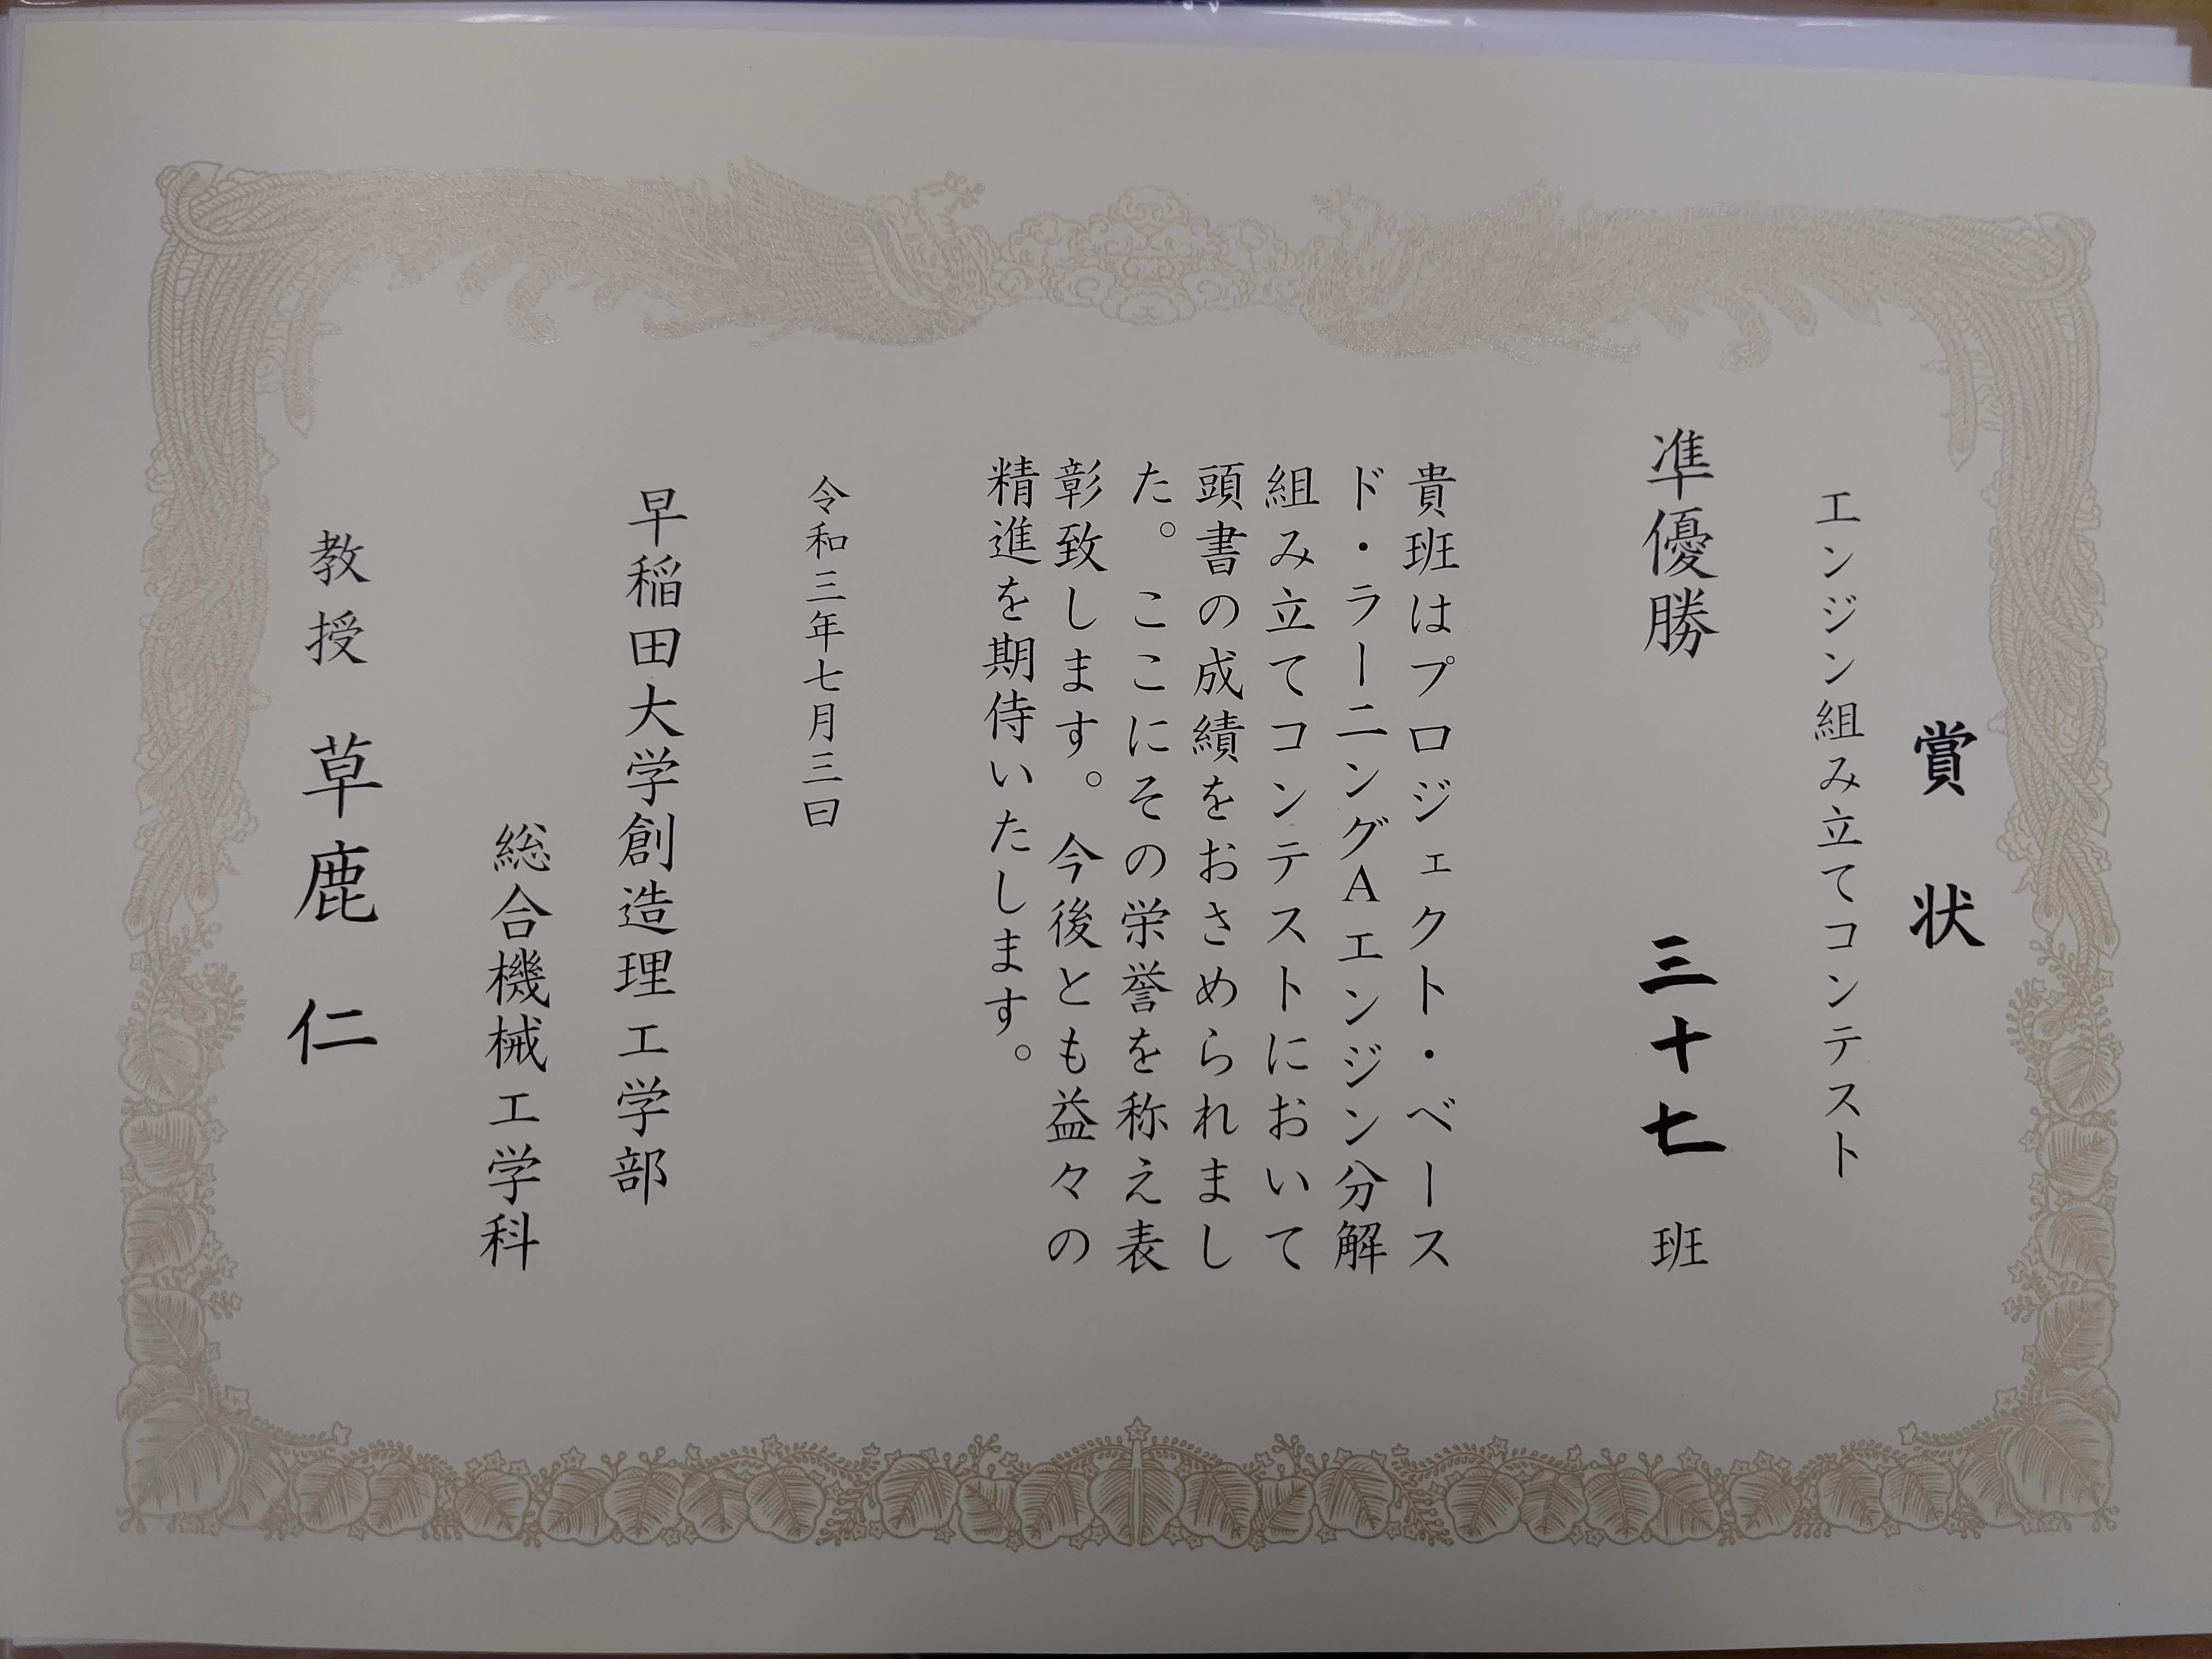 賞状
エンジン組み立てコンテスト
準優勝 三十七班
貴班はプロジェクト・ベース
ド・ラーニングAエンジン分解
組み立てコンテストにおいて
頭書の成績をおさめられまし
た。ここにその栄誉を称え表
彰致します。今後とも益々の
精進を期待いたします。
令和三年七月三日
早稲田大学創造理工学部
総合機械工学科
教授 草鹿 仁